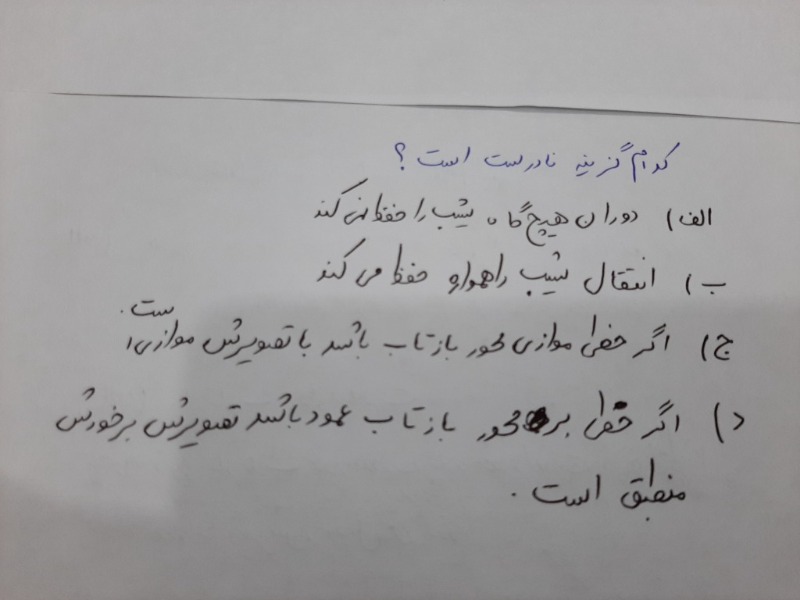 کدام گزینه نادرست است ؟
الف) دوران هیچ گاه شیب را حفظ نمی کند
ب) انتقال شیب را همواره حفظ می کند
ج) اگر خطی موازی محور بازتاب باشد با تصویرش موازی است.
د) اگر خطی بر محور بازتاب عمود باشد تصویرش برخودش
منطبق است .